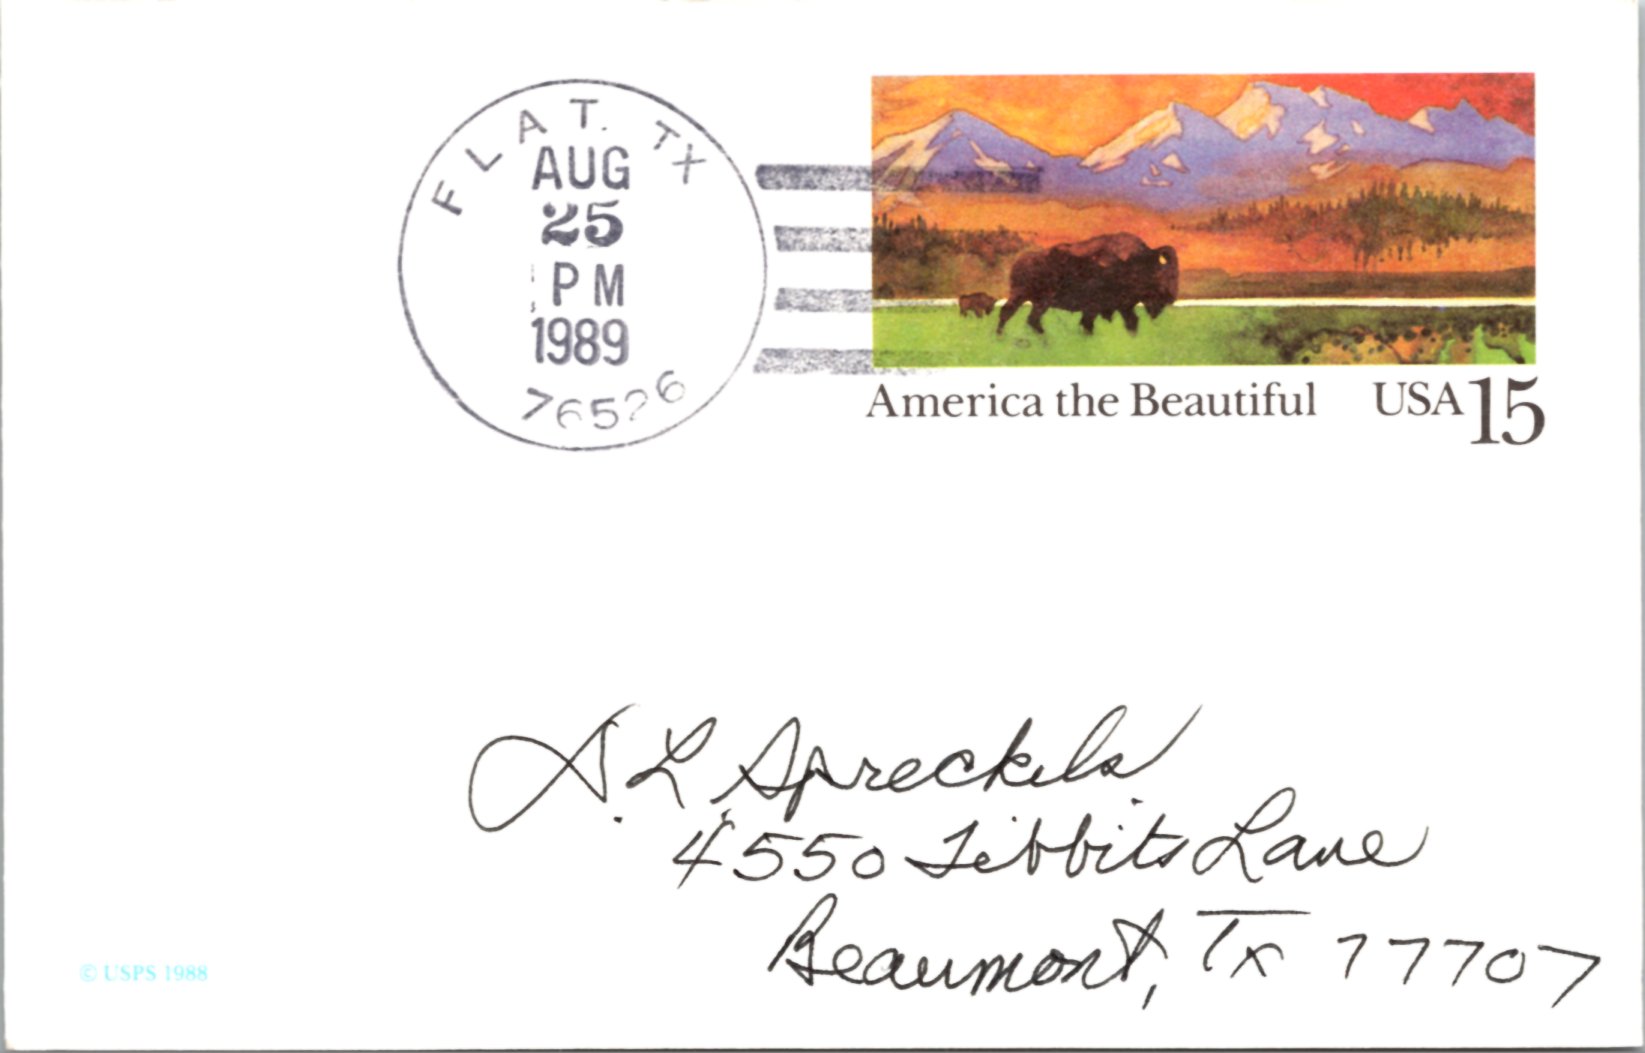 FLAT. TX
AUG
25
PM
1989
76526
America the Beautiful USA 15
S. L. Spreckels
4550 Tibbits Lane
Beaumont, Tx 77707
© USPS 1988